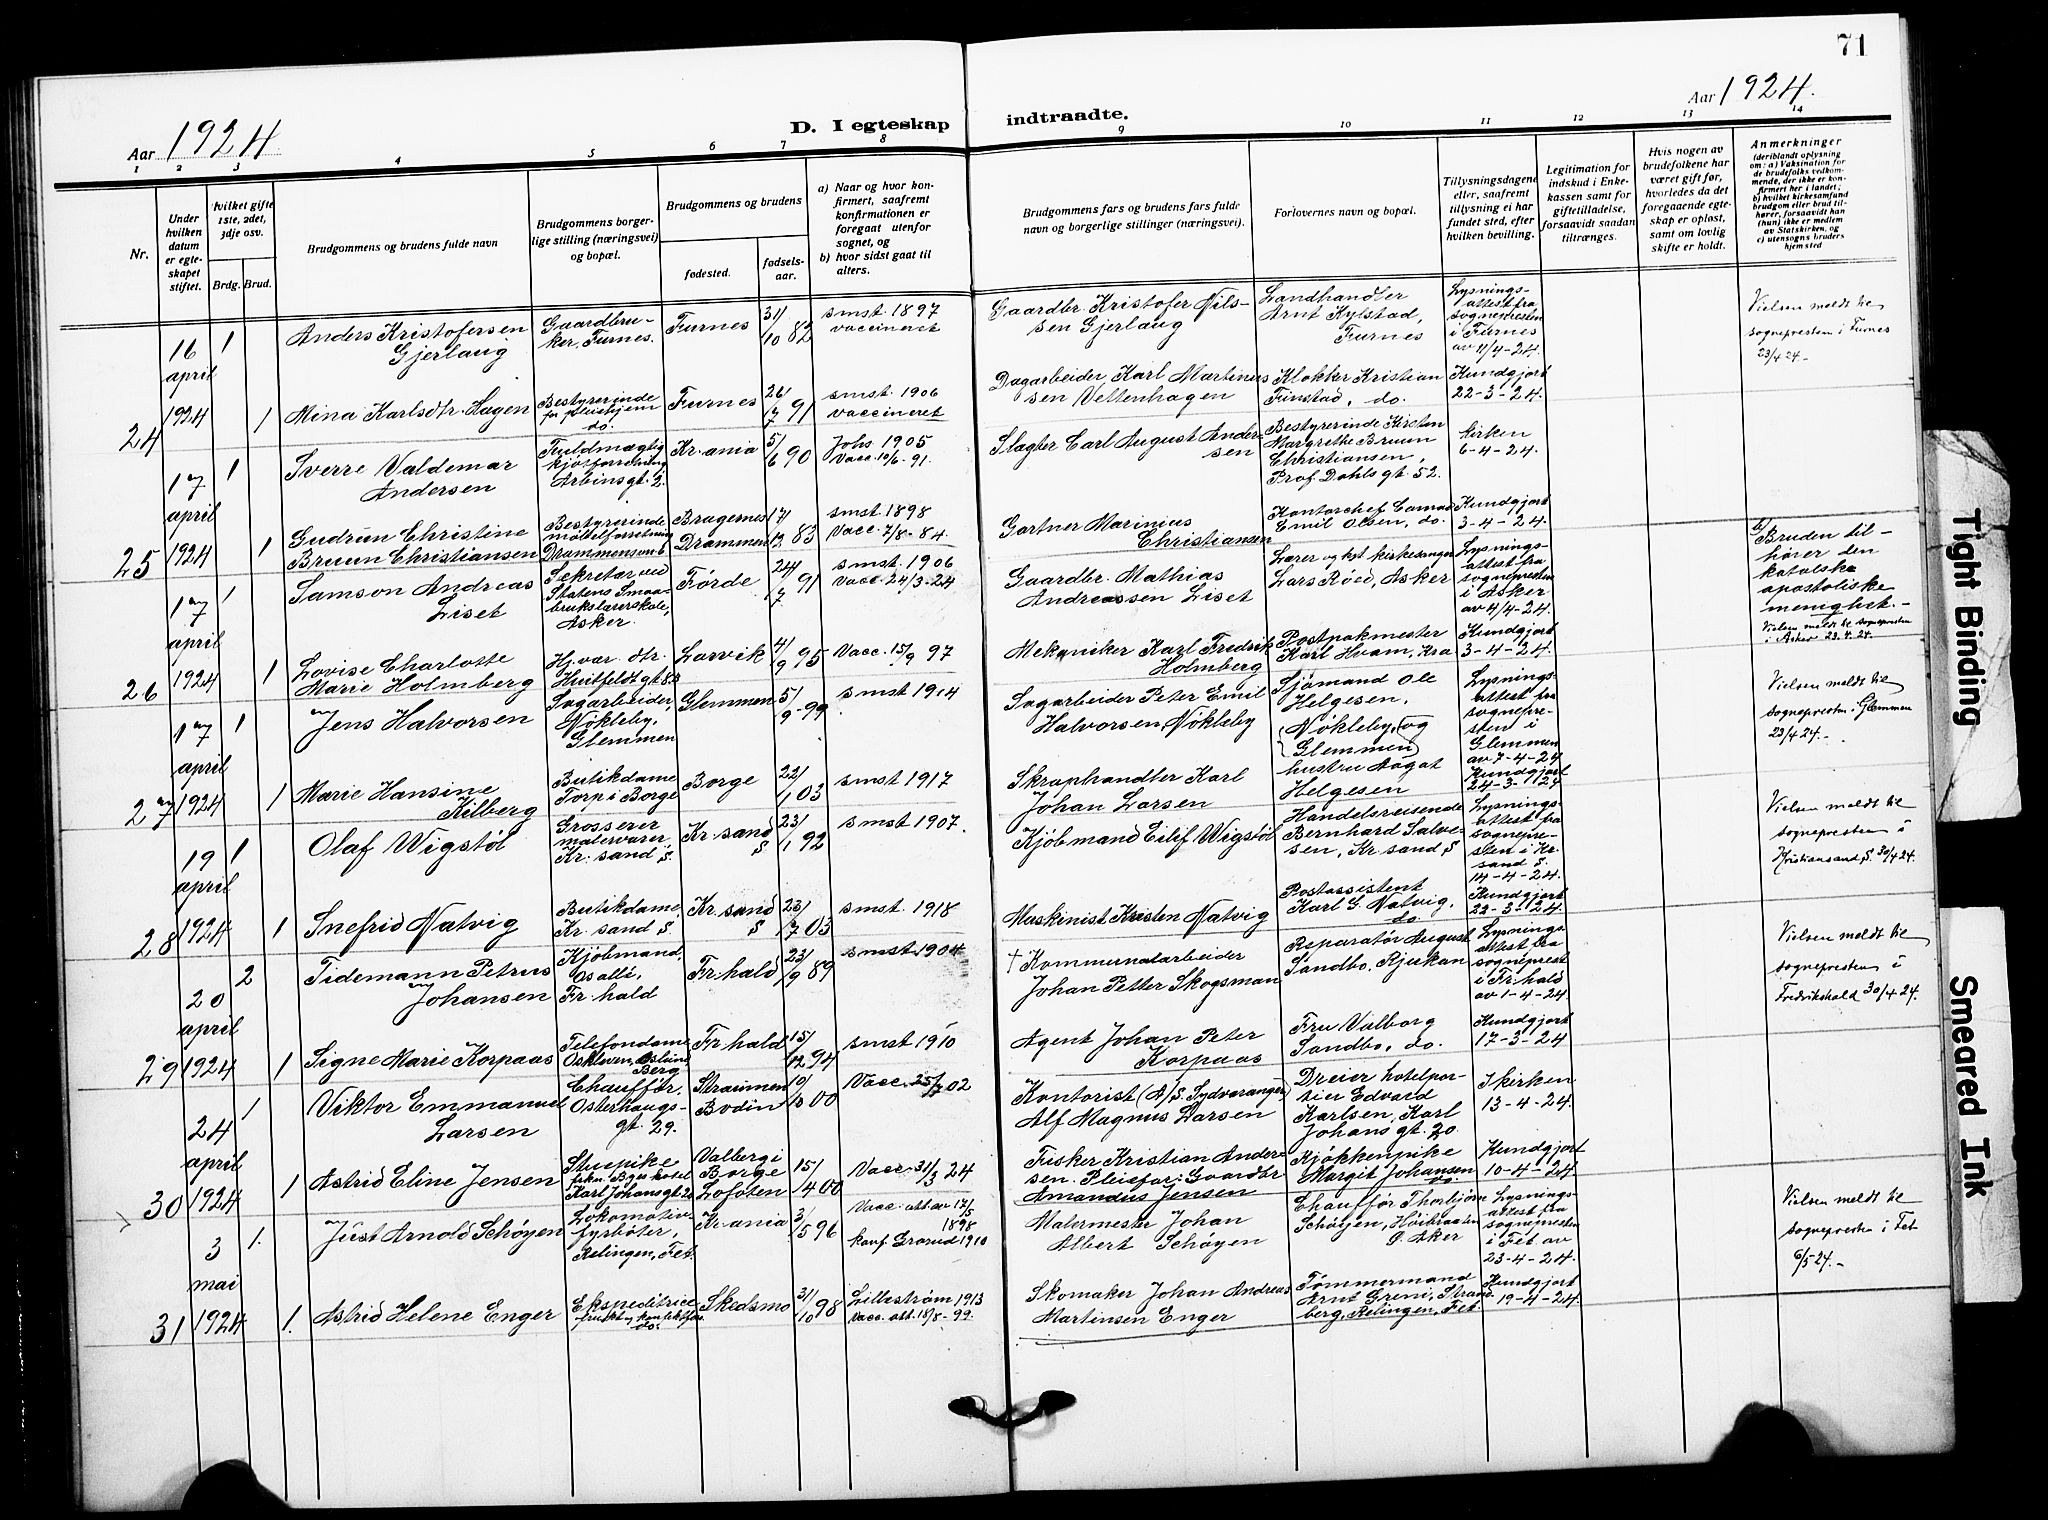 71
Aar 1924.
D. I egteskap
indtraadte.
Aar 1924.
1 2 3 4 5 6 7 8 9 10 11 12 13 14
Nr.
Under
hvilken
datum
er egte-
skapet
stiftet.
Hvilket gifte
1ste, 2det,
3dje osv.
Brdg. Brud.
Brudgommens og brudens fulde navn
Brudgommens borger-
lige stilling (næringsvei)
og bopæl.
Brudgommens og brudens
fødested.
fødsels-
aar.
a) Naar og hvor kon-
firmert, saafremt
konfirmationen er
foregaat utenfor
sognet, og
b) hvor sidst gaat til
alters.
Brudgommens fars og brudens fars fulde
navn og borgerlige stillinger (næringsvei).
Forlovernes navn og bopæl.
Tillysningsdagene
eller, saafremt
tillysning ei har
fundet sted, efter
hvilken bevilling.
Legitimation for
indskud i Enke-
kassen samt for
giftetilladelse,
forsaavidt saadan
tiltrænges.
Hvis nogen av
brudefolkene har
været gift før,
hvorledes da det
foregaaende egte-
skap er opløst,
samt om lovlig
skifte er holdt.
Anmerkninger
(deriblandt oplysning
om: a) Vaksination for
de brudefolks vedkom-
mende, der ikke er kon-
firmert her i landet;
b) hvilket kirkesamfund
brudgom eller brud til-
hører, forsaavidt han
(hun) ikke er medlem
av Statskirken, og
c) utensogns bruders
hjemsted
24
16
april
1924
1
Anders Kristofersen
Gjerlaug
Gaardbru-
ker, Furnes.
Furnes
31/10 82
smst. 1897
vaccineret
Gaardbr. Kristofer Nils-
sen Gjerlaug
Landhandler
Arnt Kylstad,
Furnes
Lysnings-
attest fra
sognepresten
i Furnes
av 11/4-24.
Vielsen meldt til
sognepresten i Furnes
23/4 24.-
1
Mina Karlsdtr. Hagen
Bestyrerinde
for pleiehjem
do.
Furnes
26/7 91
smst. 1906
vaccineret
Dagarbeider Karl Martinus
sen Vettenhagen
Klokker Kristian
Finstad, do.
Kundgjort
22-3-24.
25
17
april
1924
1
Sverre Valdemar
Andersen
Fuldmægtig
kjøtforretning
Arbinsgt. 2.
Kr.ania
5/6 90
Johs 1905
Vacc. 10/6-91.
Slagter Carl August Ander-
sen
Bestyrerinde Kirsten
Margrethe Bruun
Christiansen,
Prof. Dahls gt. 52.
kirken
6-4-24.
1
Gudrun Christine
Bruun Christiansen
Bestyrerinde
møbelforretning
Drammensv. 6
Bragernes
Drammen
17/12 83
smst. 1898
Vacc. 7/8-84.
Gartner Marinius
Christiansen
Kontorchef
Emil Olsen, do.
Kundgjort
3-4-24.
26
17
april
1924
1
Samson Andreas
Liset
Sekretær ved
Statens Smaa-
brukslærerskole,
Asker.
Førde
24/7 91
smst. 1906
Vacc. 24/3-24
Gaardbr. Mathias
Andreassen Liset
Lærer og kst. kirkesanger
Lars Røed, Asker
Lysnings-
attest fra
sognepresten
i Asker
av 4/4-24.
b) Bruden til-
hører den
katolske
apostoliske
menighet.-
Vielsen meldt til sognepresten
i Asker 23.4.24.
1
Lovise Charlotte
Marie Holmberg
Hj.vær. dtr.
Huitfeldtgt 8B
Larvik
4/9 95
Vacc. 15/9 97
Mekaniker Karl Fredrik
Holmberg
Postpakmester
Karl Hvam, Kra
Kundgjort
3-4-24.
27
17
april
1924
1
Jens Halvorsen
Sagarbeider,
Nøkleby,
Glemmen
Glemmen
5/9-99
smst 1914
Sagarbeider Peter Emil
Halvorsen Nøkleby
Sjømand Ole
Helgesen,
(Nøkleby, og
Glemmen)
hustru Aagot
Helgesen
Lysnings-
attest fra
sognepre-
sten i
Glemmen
av 7-4-24
Vielsen meldt til
sognepresten i Glemmen
23/4 24.-
1
Marie Hansine
Kilberg
Butikdame
Torp i Borge
Borge
22/1 03
smst 1917
Skraphandler Karl
Johan Larsen
Kundgjort
24-3-1924
28
19
april
1924
1
Olaf Wigstøl
Grosserer
malervarer,
Kr.sand S.
Kr.sand
S
23/1 92
smst 1907.
Kjøbmand Eilif Wigstøl
Handelsreisende
Bernhard Salve-
sen, Kr.sand S
Lysnings-
attest fra
sognepre-
sten i Kr.
sand S.
14-4-24.
Vielsen meldt til
sognepresten i
Kristiansand S. 30/4 24.
1
Snefrid Natvig
Butikdame,
Kr.sand S.
Kr.sand
S
23/7 03
smst. 1918
Maskinist Kristen Natvig
Postassistent
Karl G. Natvig,
do.
Kundgjort
22-3-24.
29
20
april
1924
2
Tidemann Petrus
Johansen
Kjøbmand,
Os allé,
Fr.hald
Fr.hald
23/9 89
smst 1904
† Kommunalarbeider
Johan Petter Skogsman
Reparatør August
Sandbo, Rjukan
Lysnings-
attest fra
sogneprest
i Fr.hald
av 1-4-24.
Vielsen meldt til
sognepresten i
Fredrikshald 30/4 24.
1
Signe Marie Korpaas
Telefondame
Berg
Fr.hald
15/12 94
smst 1910
Agent Johan Peter
Korpaas
Fru Valborg
Sandbo, do.
Kundgjort
17-3-24
30
24
april
1924
1
Viktor Emmanuel
Larsen
Chauffør,
Osterhaugs-
gt. 29.
Straumen
Bodin
10/10 00
Vacc. 25/7 02
Kontorist (A/S. Sydvaranger)
Alf Magnus Larsen
Dreier hotelpor-
tier Edvard
Karlsen, Karl
Johans gt. 20.
I kirken
13-4-24.
1
Astrid Eline Jensen
Stuepike
frkn. Bges hotel
Karl Johansgt. 20
Valberg i
Borge
Lofoten
15/4 00
Vacc. 31/3 24
Fisker Kristian Ander-
sen. Pleiefar: Gaardbr
Amandus Jensen
Kjøkkenpike
Margit Johansen
do.
Kundgjort
10-4-24.
31
3
mai
1924
1.
Just Arnold Schøyen
Lokomotiv-
fyrbøter,
Rælingen, Fet.
Kr.ania
3/5 96
Vacc. att. av 17/5
1898
konf. Grorud 1910
Malermester Johan
Albert Schøyen
Chauffør Thorbjørn
Schøyen, Høibraaten
Ø. Aker
Lysnings-
attest fra
sognepresten
i Fet av
23-4-24.
Vielsen meldt til
sognepresten i Fet
6/5 24.-
1.
Astrid Helene Enger
Ekspeditrice
frukt og konfektfor.
do.
Skedsmo
31/10 98
Lillestrøm 1913
Vacc. att. 18/8-99.
Skomaker Johan Andreas
Martinsen Enger
Tømmermand
Arnt Greni, Strand-
berg, Rælingen, Fet
Kundgjort
19-4-24.
Tight Binding
Smeared Ink